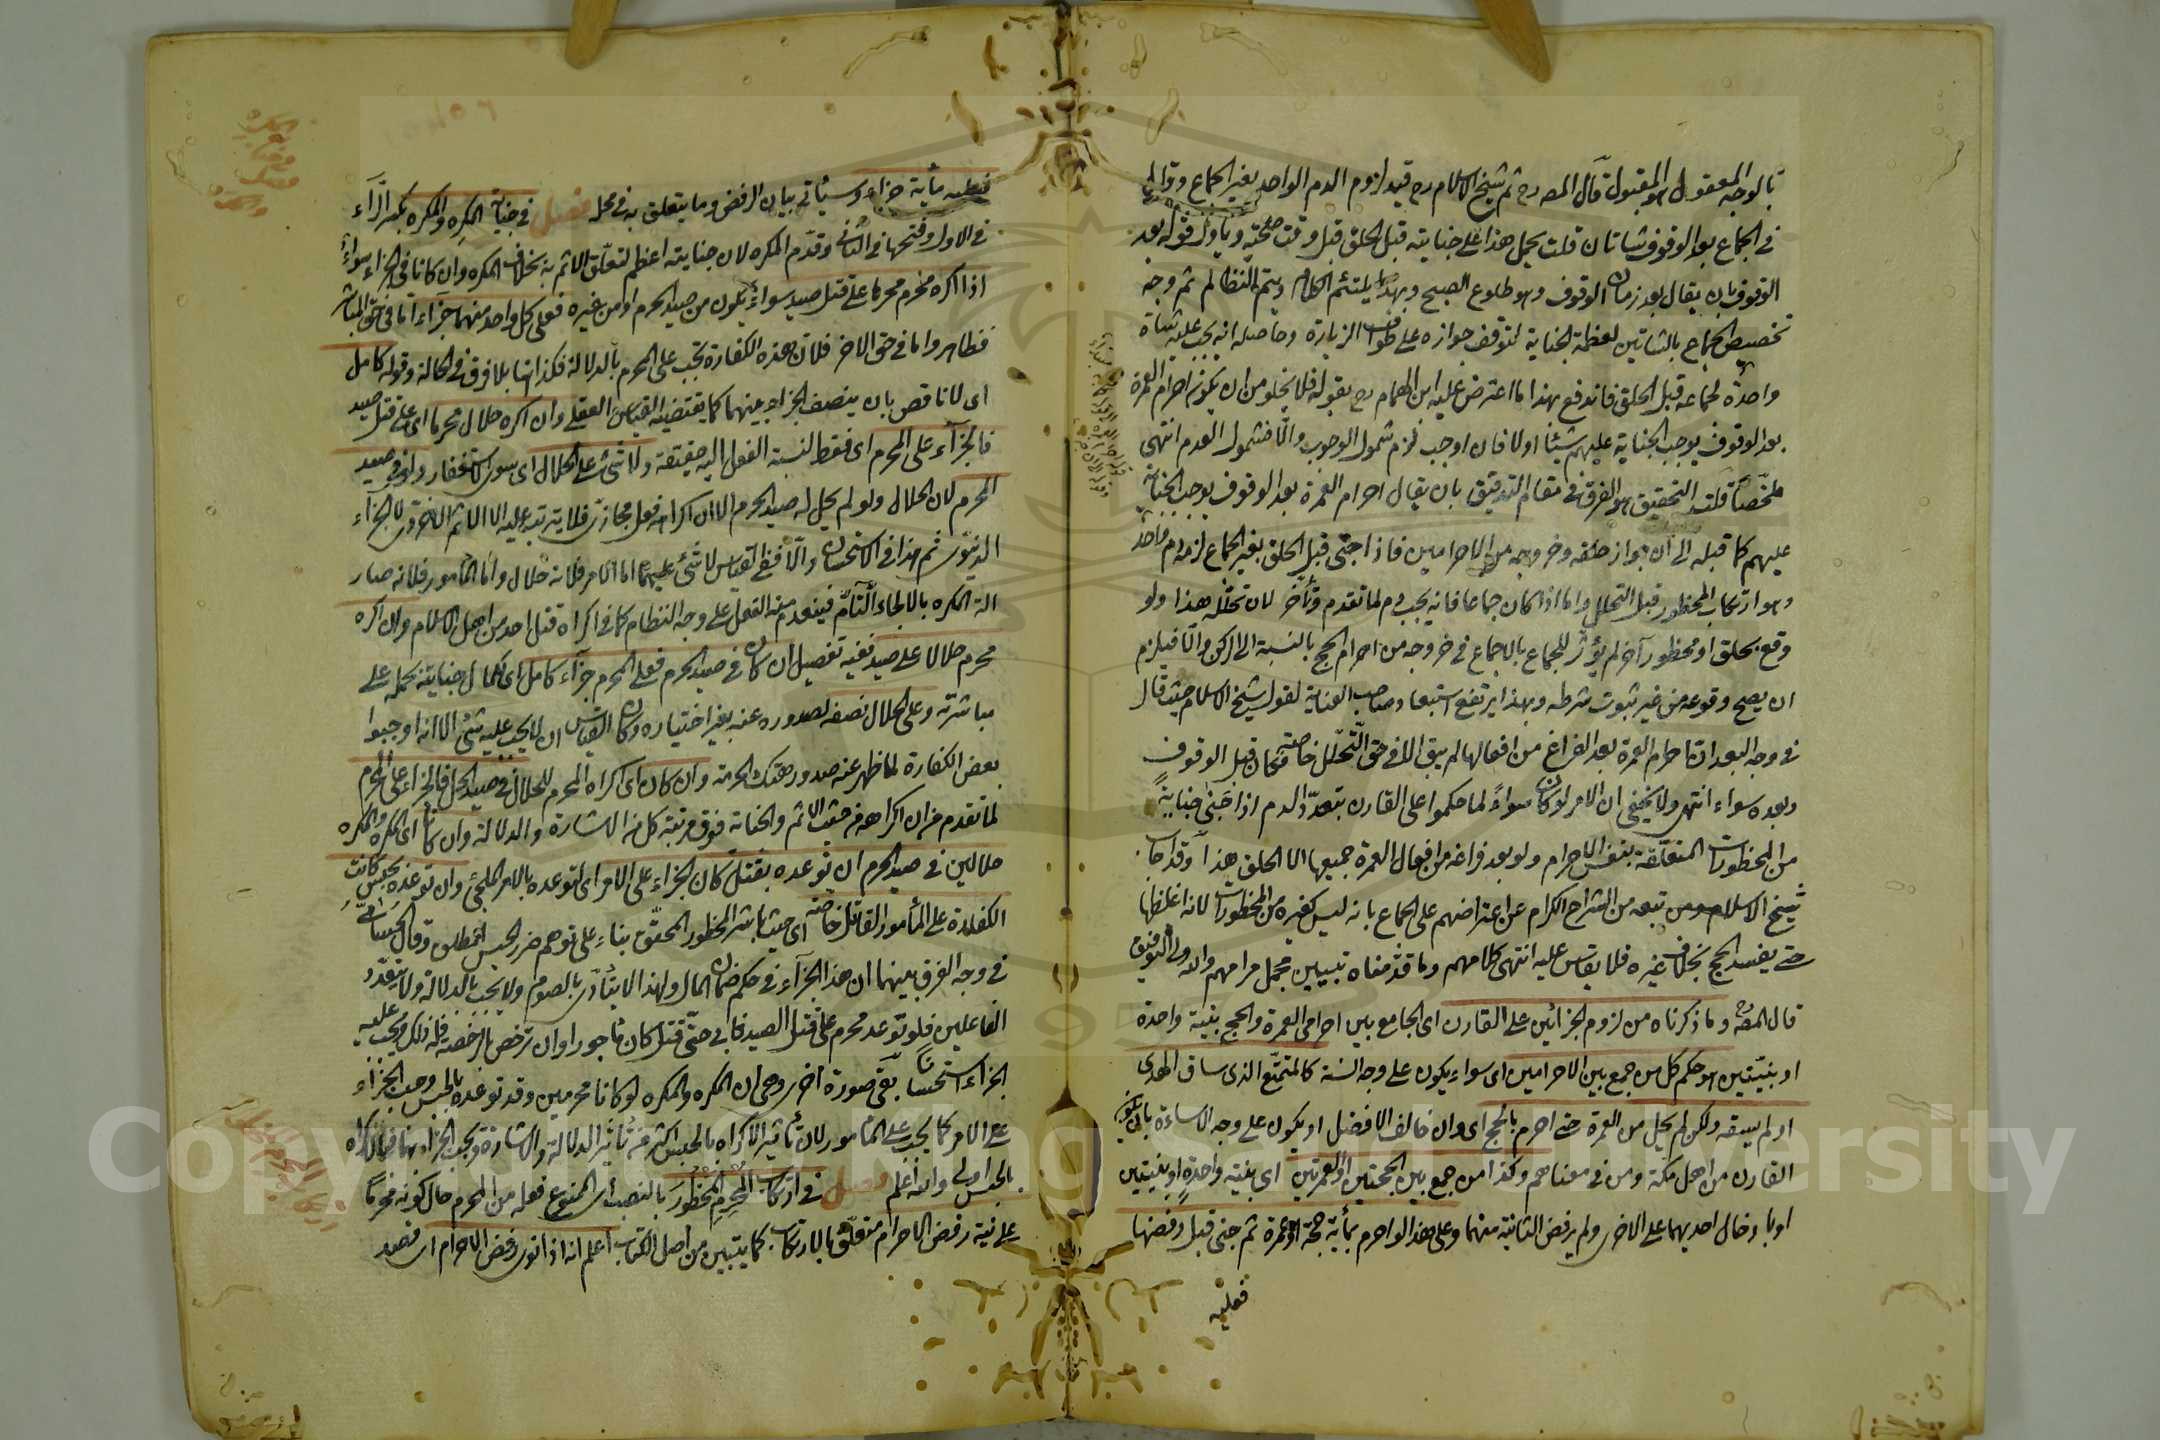 بالوجه المعقول هو المقبول قال المصـ رح ثم شيخ الاسلام رح قيد لزوم الدم الواحد بغير الجماع وقال
في الجماع بعد الوقوف شاتان قلت يحمل هذا على جنايته قبل الحلق قبل وقت صحته ويأول قوله بعد
الوقوف بان يقال بعد زمان الوقوف وهو طلوع الصبح وبهذا يلتئم الكلام ويتم النظام ثم وجه
تخصيص الجماع بالشاتين لعظمة الجناية لتوقف جوازه على طواف الزيارة وحاصله انه يجب عليه شاة
واحدة لجماعه قبل الحلق فاندفع بهذا ما اعترض عليه ابن الهمام رح بقوله فلا يخلو من ان يكون احرام العمرة
بعد الوقوف يوجب الجناية عليهم شيئا او لا فان اوجب لزم شمول الوجوب والا فشمول العدم انتهى
ملخصا قلت التحقيق هو الفرق في مقام التدقيق بان يقال احرام العمرة بعد الوقوف يوجب الجناية
عليهم كما قبله الى ان جواز حلقه وخروجه من الاحرامين فاذا جنى قبل الحلق بغير الجماع لزمه دم واحد
وهو ارتكاب المحظور قبل التحلل واما اذا كان جماعا فانه يجب دم لما تقدم وتأخر لان تحلله هذا ولو
وقع بحلق او محظور آخر لم يؤثر للجماع بالاجماع في خروجه من احرام الحج بالنسبة الى الركن والا فيلزم
ان يصح وقوعه من غير ثبوت شرطه وبهذا يرتفع استبعاد صاحب العناية لقول شيخ الاسلام حيث قال
في وجه البعد ان احرام العمرة بعد الفراغ من افعالها لم يبق الا في حق التحلل خاصة فكان قبل الوقوف
وبعده سواء انتهى ولا يخفى ان الامر لو كان سواء لما حكموا على القارن بتعدد الدم اذا جنى جناية
من المحظورات المتعلقة بنفس الاحرام ولو بعد فراغه من افعال العمرة جميعها الا الحلق هذا وقد اجاب
شيخ الاسلام ومن تبعه من الشراح الكرام عن اعتراضهم على الجماع بانه ليس كغيره من المحظورات لانه اغلظها
حتى يفسد الحج بخلاف غيره فلا يقاس عليه انتهى كلامهم وما قدمناه تبيين مجمل مرامهم والله ولي التوفيق
قال المصـ وما ذكرناه من لزوم الجزائين على القارن اي الجامع بين احرامي العمرة والحج بنية واحدة
او بنيتين هو حكم كل من جمع بين الاحرامين اي سواء يكون على وجه السنة كالمتمتع الذي ساق الهدي
او لم يسقه ولكن لم يحل من العمرة حتى احرم بالحج اي وان خالف الافضل او يكون على وجه الاساءة بان
القارن من اهل مكة ومن في معناهم وكذا من جمع بين الحجتين او العمرتين اي بنية واحدة او بنيتين
او بادخال احديهما على الاخرى ولم يرفض الثانية منهما وعلى هذا لو احرم بمأية حجة او عمرة ثم جنى قبل رفضها
فعليه
فعليه مأية جزاء وسيأتي بيان الرفض وما يتعلق به في محله فصل في جناية المكرِه والمكرَه بكسر الراء
في الاول وفتحها في الثاني وقدم المكره لان جنايته اعظم لتعلق الاثم به بخلاف المكره وان كانا في الجزاء سواء
اذا اكره محرم محرما على قتل صيد سواء يكون من صيد الحرم او من غيره فعلى كل واحد منهما جزاء اما في حق المباشر
فظاهر واما في حق الاخر فلان هذه الكفارة تجب على المحرم بالدلالة فكذا هنا بلا فرق في الحالة وقوله كامل
اي لا ناقص بان ينصف الجزاء بينهما كما يقتضيه القياس العقلي وان اكره حلال محرما اي على قتل صيد
فالجزاء على المحرم اي فقط لنسبة الفعل اليه حقيقة ولا شيء على الحلال اي سوى الاستغفار ولو في صيد
الحرم لان الحلال ولو لم يحل له صيد الحرم الا ان اكراهه فعل مجازي فلا يترتب عليه الا الاثم الاخروي لا الجزاء
الدنيوي ثم هذا في الاستحسان والا ففي القياس لا شيء عليهما اما الآمر فلانه حلال واما المأمور فلانه صار
آلة المكره بالالجاء التام فينعدم منه الفعل على وجه النظام كما في اكراه قتل احد من اهل الاسلام وان اكره
محرم حلالا على صيد ففيه تفصيل ان كان في صيد الحرم فعلى المحرم جزاء كامل اي لكمال جنايته بحمله على
مباشرته وعلى الحلال نصفه لصدوره عنه بغير اختياره وكان القياس ان لا يجب عليه شيء الا انه اوجبوا
بعض الكفارة لما ظهر عنه صدور هتك الحرمة وان كان اي اكراه المحرم للحلال في صيد الحل فالجزاء على المحرم
لما تقدم من ان اكراهه من حيث الاثم والجناية فوق مرتبة كل من الاشارة والدلالة وان كانا اي المكره والمكره
حلالين في صيد الحرم ان توعده بقتل كان الجزاء على الآمر اي لتوعده بالامر الملجئ وان توعده بحبس كانت
الكفارة على المأمور القاتل خاصة اي حيث باشر المحظور المحقق بناء على توهم ضرر الحبس المطلق وقال
في وجه الفرق بينهما ان هذا الجزاء في حكم ضمان المال ولهذا لا يتأدى بالصوم ولا يجب بالدلالة ولا يتعدد
الفاعلين فلو توعد محرم على قتل الصيد فابى حتى قتل كان مأجورا وان ترخص بالرخصة فله ذلك ويجب عليه
الجزاء استحسانا بقي صورة اخرى وهي ان المكره والمكره لو كانا محرمين وقد توعده بالحبس وجب الجزاء
على الآمر كما يجب على المأمور لان تأثير الاكراه بالحبس اكثر من تأثير الدلالة والاشارة ويجب الجزاء بهما فبالاكراه
بالحبس اولى والله اعلم فصل في ارتكاب المحرم المحظور بالنصب اي الممنوع فعله من المحرم حال كونه محرما
على نية رفض الاحرام متعلق بالارتكاب كما يتبين من اصل الكتاب اعلم انه اذا نوى رفض الاحرام اي قصد